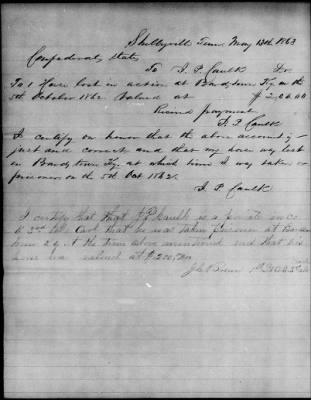 Shelbyvill Tenn May 13th 1863
Confederat States
To J. P. Caulk Dr
To 1 Horse lost in action at Bardstown Ky. on the
5th October 1862 Valued at $ 200.00
Received payment
J. P. Caulk
I certify on honor that the above account is
just and correct and that my horse was lost
in Bardstown Ky. at which time I was taken
prisoner on the 5th Oct 1862.
J. P. Caulk
I certify that J P Caulk is a private in co
2nd that he was taken prisoner at
at the time above mentioned and that his
horse was valued at $ 200.00